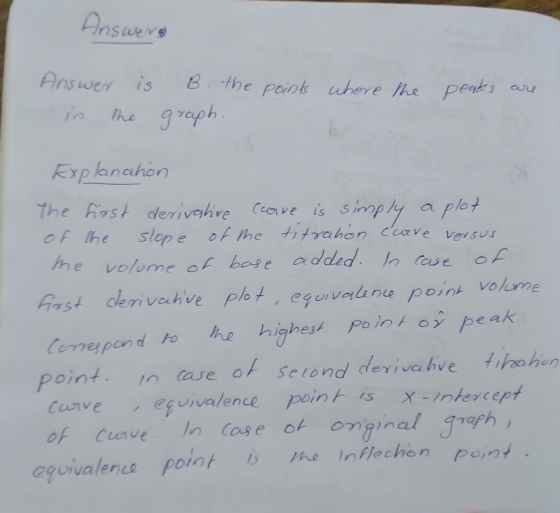 Answer
Answer is B. the points where the peaks are
in the graph.
Explanation
The first derivative curve is simply a plot
of the slope of the titration curve versus
the volume of base added. In case of
first derivative plot, equivalence point volume
correspond to the highest point or peak
point. in case of second derivative titration
curve, equivalence point is x-intercept
of curve. In case of original graph,
equivalence point is the inflection point.